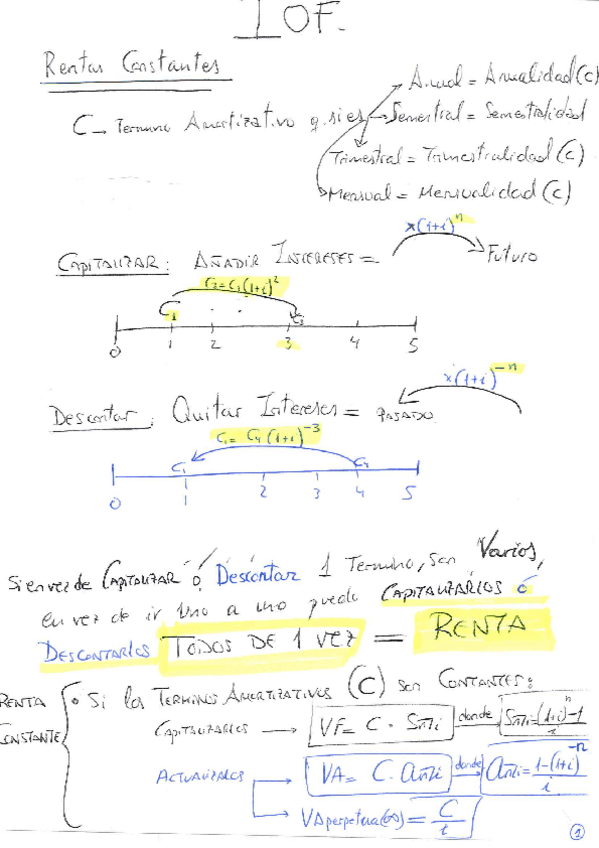 IOF.
Rentas Constantes
Anual = Anualidad (C)
C → Termino Amortizativo q. si es → Semestral = Semestralidad
Trimestral = Trimestralidad (C)
Mensual = Mensualidad (C)
x(1+i)^n
CAPITALIZAR: AÑADIR INTERESES = Futuro
C₂=C₁(1+i)²
C₁ C₃
0 1 2 3 4 5
x(1+i)^-n
Descontar: Quitar Intereses = PASADO
C₁= C₄(1+i)^-3
C₁ C₄
0 1 2 3 4 5
Si en vez de CAPITALIZAR ó Descontar 1 Termino, son Varios,
en vez de ir uno a uno puedo CAPITALIZARLOS ó
DESCONTARLOS TODOS DE 1 VEZ = RENTA
RENTA CONSTANTE
• Si los TERMINOS AMORTIZATIVOS (C) son CONTANTES:
CAPITALIZARLOS → VF= C · Sn̅|i donde Sn̅|i=((1+i)^n-1)/i
ACTUALIZARLOS → VA= C. an̅|i donde an̅|i=(1-(1+i)^-n)/i
VA perpetua(∞)= C/i
1